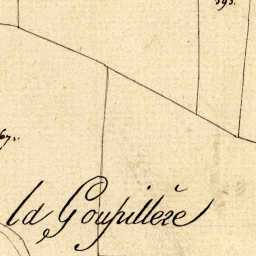 593.
67.
la Goupillere